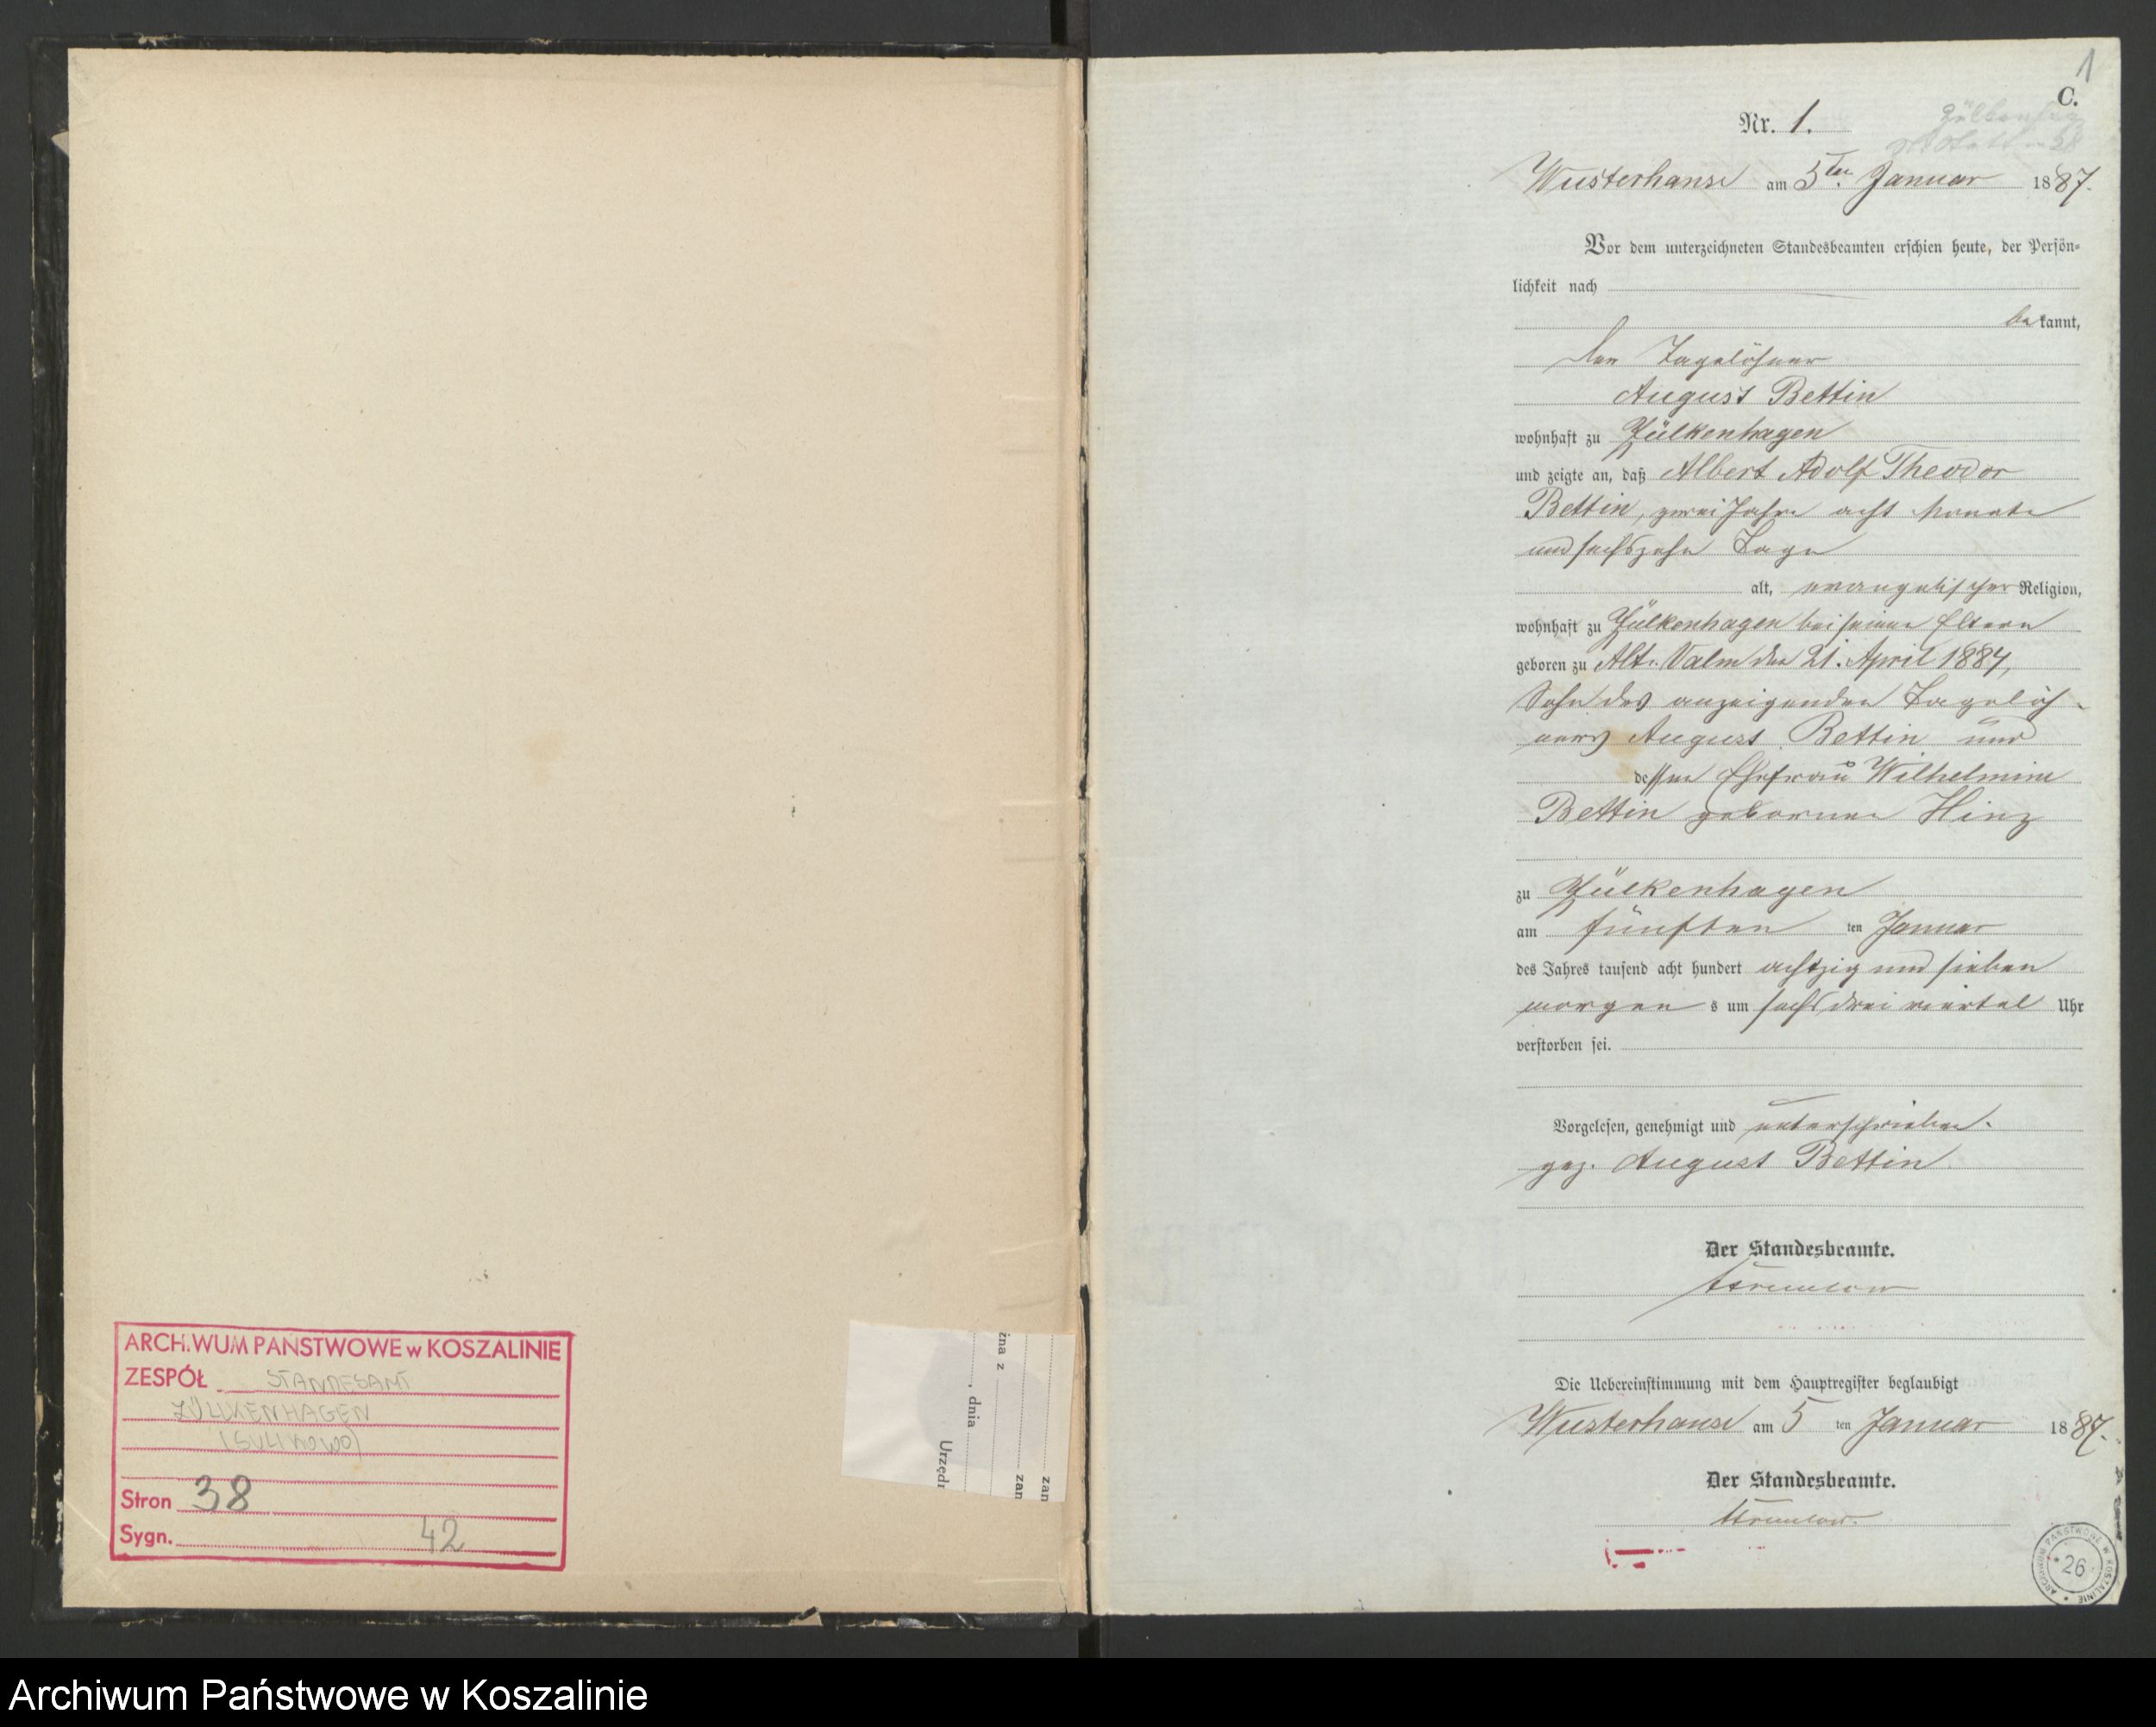 ARCHIWUM PAŃSTWOWE w KOSZALINIE
ZESPÓŁ STANDESAMT
ZÜLKENHAGEN
(SULIKOWO)
Stron 38
Sygn. 42
żna z
, dnia
Urzędn
zan
zan
1
C.
Nr. 1.
Wusterhanse am 5ten Januar 1887.
Vor dem unterzeichneten Standesbeamten erschien heute, der Persön-
lichkeit nach
bekannt,
der Tagelöhner
August Bettin
wohnhaft zu Zülkenhagen
und zeigte an, daß Albert Adolf Theodor
Bettin, zwei Jahre acht Monate
und sechszehn Tage
alt, evangelischer Religion,
wohnhaft zu Zülkenhagen bei seinen Eltern
geboren zu Alt-Valm den 21. April 1884,
Sohn des anzeigenden Tagelöh-
ners August Bettin und
dessen Ehefrau Wilhelmine
Bettin geborenen Hinz
zu Zülkenhagen
am fünften ten Januar
des Jahres tausend acht hundert achtzig und sieben
morgens um sechs drei viertel Uhr
verstorben sei.
Vorgelesen, genehmigt und unterschrieben.
gez. August Bettin
Der Standesbeamte.
Die Uebereinstimmung mit dem Hauptregister beglaubigt
Wusterhanse am 5 ten Januar 1887.
Der Standesbeamte.
ARCHIWUM PAŃSTWOWE W KOSZALINIE
* 26 *
Archiwum Państwowe w Koszalinie